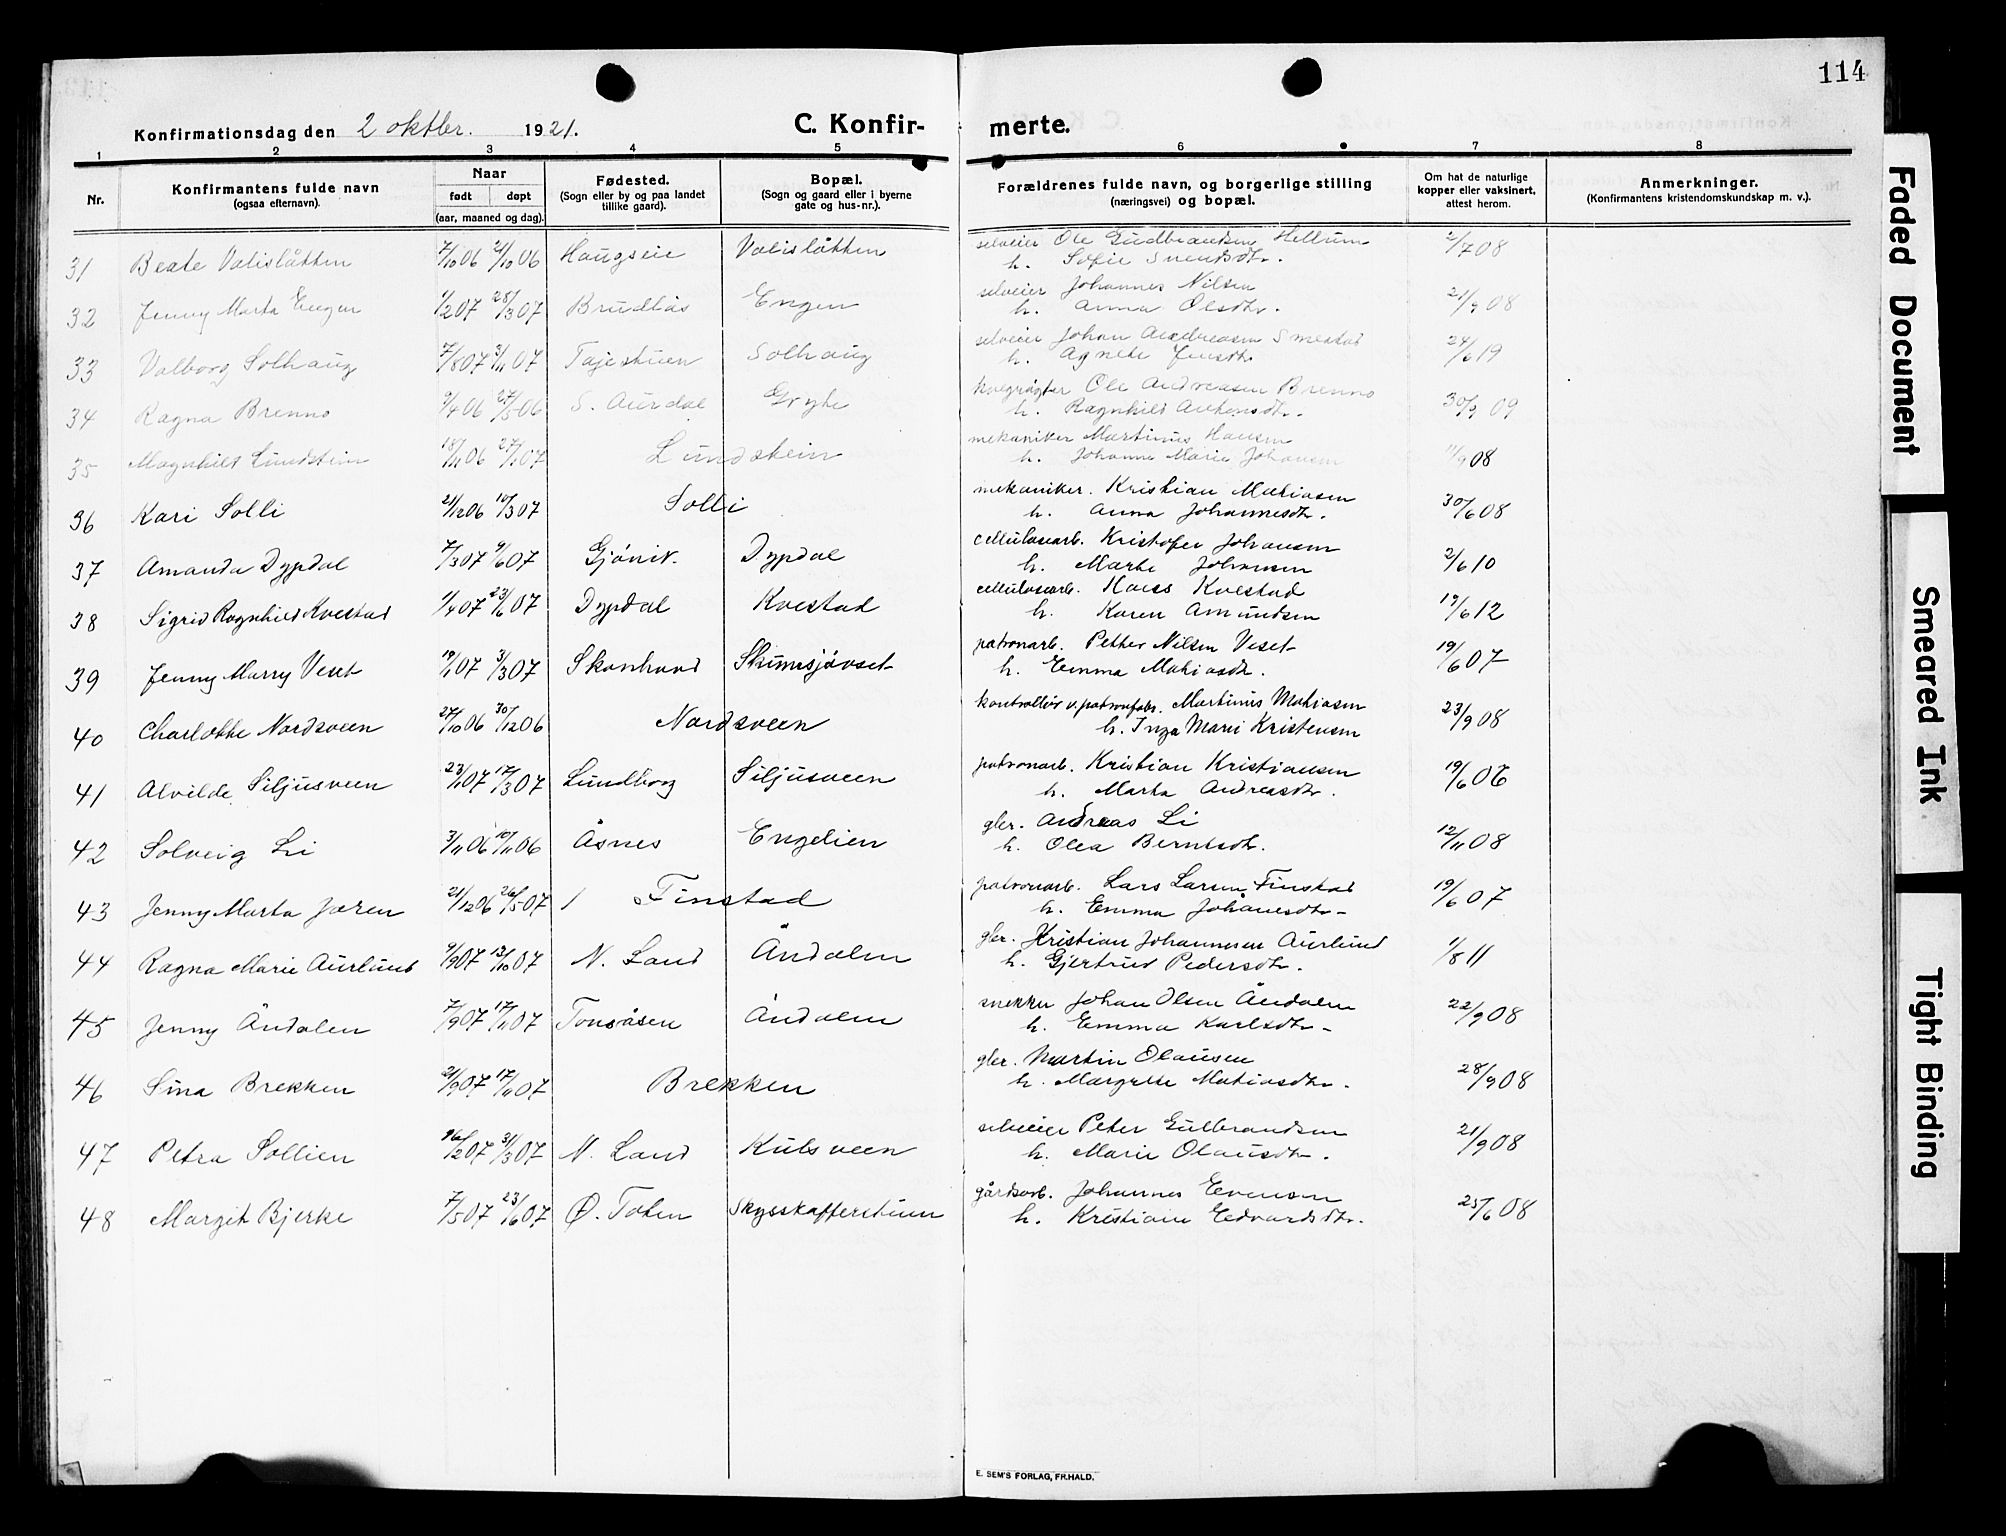 114
Konfirmationsdag den 2 oktbr. 1921.
C. Konfir- merte.
1 2 3 4 5 6 7 8
Nr.
Konfirmantens fulde navn
(ogsaa efternavn).
Naar
født døpt
(aar, maaned og dag).
Fødested.
(Sogn eller by og paa landet
tillike gaard).
Bopæl.
(Sogn og gaard eller i byerne
gate og hus-nr.).
Forældrenes fulde navn, og borgerlige stilling
(næringsvei) og bopæl.
Om hat de naturlige
kopper eller vaksinert,
attest herom.
Anmerkninger.
(Konfirmantens kristendomskundskap m. v.).
31 Beate Valislåtten 7/10 06 21/10 06 Haugseie Valislåtten selveier Ole Gudbrandsen Hellum 2/7 08
h. Sofie Svendsdtr.
32 Jenny Marta Engen 1/2 07 28/3 07 Brudlås Engen selveier Johannes Nilsen 21/9 08
h. Anna Olsdtr.
33 Valborg Solhaug 7/8 07 3/11 07 Tajestuen Solhaug selveier Johan Andreasen Smestad 24/6 19
h. Agnete Jensdtr.
34 Ragna Brenno 9/4 06 27/5 06 S. Aurdal Gryte Ole Andreasen Brenno 30/9 09
h. Ragnhild Antonsdtr.
35 Magnhild Lundstein 18/11 06 27/1 07 Lundstein mekaniker Martinus Hansen 11/9 08
h. Johanne Marie Johansen
36 Kari Solli 21/12 06 10/3 07 Solli mekaniker. Kristian Matiasen 30/6 08
h. Anna Johannesdtr.
37 Amanda Dypdal 7/3 07 9/6 07 Gjøvik. Dypdal cellulosearb. Kristofer Johansen 2/6 10
h. Marte Johansen
38 Sigrid Ragnhild Kvestad 1/4 07 23/6 07 Dypdal Kvestad cellulosearb. Hans Kvestad 19/6 12
h. Karen Amundsen
39 Jenny Marry Veset 19/1 07 3/3 07 Skonhovd Skumsjøvset patronarb. Petter Nilsen Veset 19/6 07
h. Emma Matiasdtr.
40 Charlotte Nordsveen 27/10 06 30/12 06 Nordsveen kontrollør v. patronfabr. Martinus Matiasen 23/9 08
h. Inga Marie Kristensen
41 Alvilde Siljusveen 23/1 07 17/3 07 Lundborg Siljusveen patronarb. Kristian Kristiansen 19/6 06
h. Marta Andreasdtr.
42 Solveig Li 3/11 06 10/11 06 Åsnes Engelien gbr. Andreas Li 12/11 08
h. Olea Berntsdtr.
43 Jenny Marta Jøren 21/12 06 26/5 07 Finstad patronarb. Lars Larsen Finstad 19/6 07
h. Emma Johanesdtr.
44 Ragna Marie Aurlund 9/9 07 13/10 07 N. Land Åndalen gbr. Kristian Johannesen Aurlund 1/8 11
h. Gjertrud Pedersdtr.
45 Jenny Åndalen 7/9 07 17/11 07 Tonsåsen Åndalen snekker Johan Olsen Åndalen 22/9 08
h. Emma Karlsdtr.
46 Sina Brekken 21/9 07 17/11 07 Brekken gbr. Martin Olausen 28/9 08
h. Margrette Matiasdtr.
47 Petra Sollien 16/2 07 31/3 07 N. Land Kulsveen selveier Peter Gulbrandsen 21/9 08
h. Marie Olausdtr.
48 Margit Bjerke 7/5 07 23/6 07 Ø. Toten Skysskafferstuen gårdsarb. Johannes Evensen 25/6 08
h. Kristiane Edvardsdtr.
E. SEM'S FORLAG, FR.HALD.
Faded Document
Smeared Ink
Tight Binding